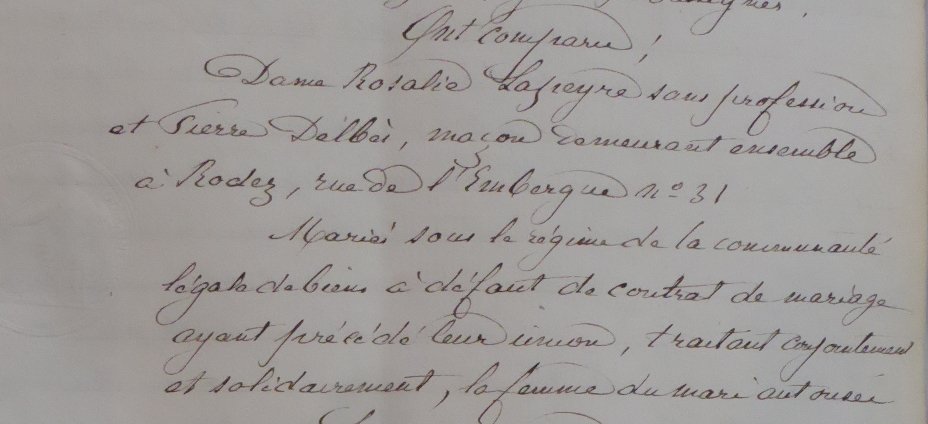 Ont comparu !
Dame Rosalie Lapeyre sans profession
et Pierre Délbès, maçon demeurant ensemble
à Rodez, rue de l'Embergue nº 31
Mariés sous le régime de la communauté
légale de biens à défaut de contrat de mariage
ayant précédé leur union, traitant conjointement
et solidairement, la femme du mari autorisée